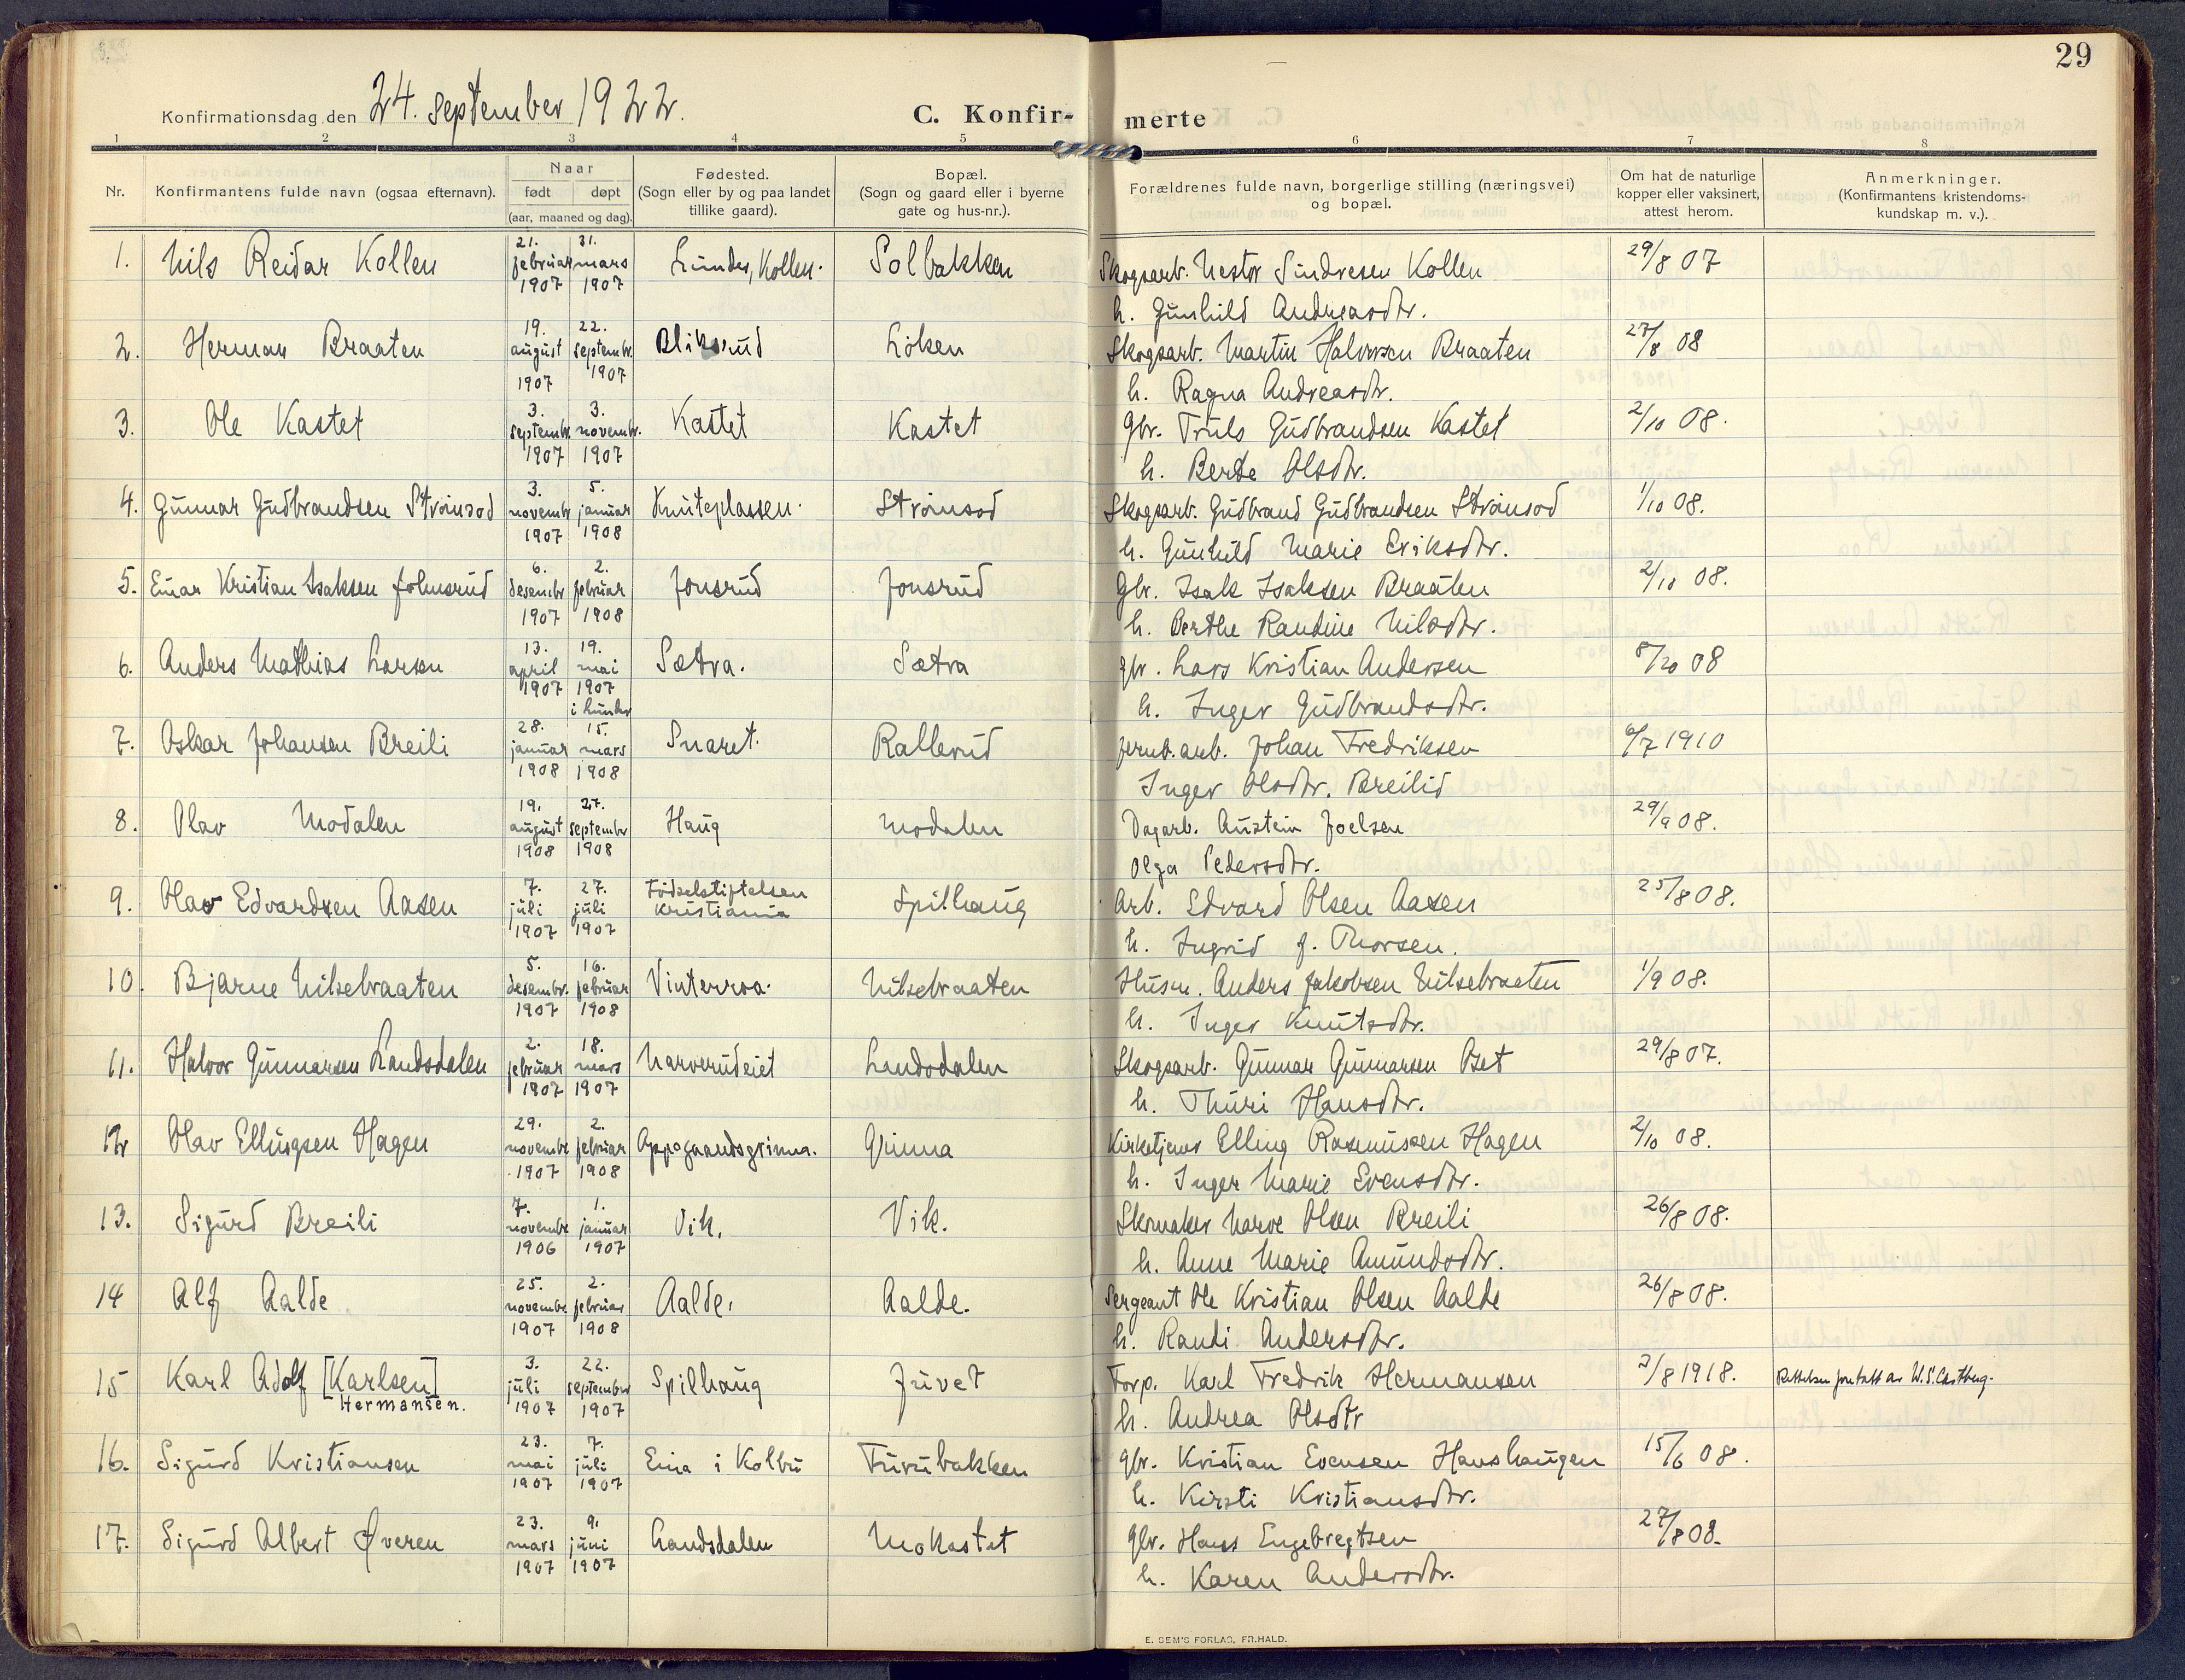 29
Konfirmationsdag den 24. september 1922.
C. Konfir-merte
1 2 3 4 5 6 7 8
Nr. Konfirmantens fulde navn (ogsaa efternavn). Naar født døpt (aar, maaned og dag). Fødested. (Sogn eller by og paa landet tillike gaard). Bopæl. (Sogn og gaard eller i byerne gate og hus-nr.). Forældrenes fulde navn, borgerlige stilling (næringsvei) og bopæl. Om hat de naturlige kopper eller vaksinert, attest herom. Anmerkninger. (Konfirmantens kristendoms-kundskap m. v.).
1. Nils Reidar Kollen 21. februar 1907 31. mars 1907 Lunder, Kollen. Solbakken Skogsarb. Nestor Sindresen Kollen 29/8 07
h. Gunhild Andreasdtr.
2. Herman Braaten 19. august 1907 22. septembr. 1907 Bliksrud Løken Skogsarb. Martin Halvorsen Braaten 27/8 08
h. Ragna Andreasdtr.
3. Ole Kastet 3. septembr. 1907 3. novembr. 1907 Kastet Kastet gbr. Truls Gudbrandsen Kastet 2/10 08.
h. Berte Olsdtr.
4. Gunnar Gudbrandsen Strømsod 3. novembr 1907 5. januar 1908 Knuteplassen. Strømsod Skogsarb. Gudbrand Gudbrandsen Strømsod 1/10 08.
h. Gunhild Marie Eriksdtr.
5. Einar Kristian Isaksen Johnsrud 6. desembr 1907 2. februar 1908 Jonsrud Jonsrud Gbr. Isak Isaksen Braaten 2/10 08.
h. Berthe Randine Nilsdtr.
6. Anders Mathias Larsen 13. april 1907 19. mai 1907 i Lunder Sætra. Sætra gbr. Lars Kristian Andersen 8/20 08
h. Inger Gudbrandsdtr.
7. Oskar Johansen Breili 28. januar 1908 15. mars 1908 Snaret. Rallerud jernb.arb. Johan Fredriksen 6/7 1910
Inger Olsdtr. Breilid
8. Olav Modalen 19. august 1908 27. septembr 1908 Haug Modalen Dagarb. Austein Joelsen 29/9 08.
Olga Pedersdtr.
9. Olav Edvardsen Aasen 7. juli 1907 27. juli 1907 Fødselstiftelsen Kristiania Spilhaug Arb. Edvard Olsen Aasen 25/8 08.
h. Ingrid f. Thorsen.
10. Bjarne Nilsebraaten 5. desembr. 1907 16. februar 1908 Vinterroa. Nilsebraaten Husm. Anders Jakobsen Nilsebraaten 1/9 08.
h. Inger Knutsdtr.
11. Halvor Gunnarsen Landsdalen 2. februar 1907 18. mars 1907 Narverudeiet Landsdalen Skogsarb. Gunnar Gunnarsen Oset 29/8 07.
h. Thuri Hansdtr.
12 Olav Ellingsen Hagen 29. novembr 1907 2. februar 1908 Oppegaardsgrinna. Grinna Kirketjener Elling Rasmussen Hagen 2/10 08.
h. Inger Marie Evensdtr.
13. Sigurd Breili 7. novembr 1906 1. januar 1907 Vik. Vik. Skomaker Narve Olsen Breili 26/8 08.
h. Anne Marie Amundsdtr.
14 Alf Aalde 25. novembr. 1907 2. februar 1908 Aalde. Aalde. Sergeant Ole Kristian Olsen Aalde 26/8 08.
h. Randi Andersdtr.
15 Karl Adolf [Karlsen] Hermansen. 3. juli 1907 22. september 1907 Spilhaug Juvet Forp. Karl Fredrik Hermansen 2/8 1918. Rettelsen foretatt av W.S. Castberg.
h. Andrea Olsdtr
16. Sigurd Kristiansen 23. mai 1907 7. juli 1907 Eina i Kolbu Furubakken gbr. Kristian Evensen Hanshaugen 15/6 08.
h. Kirsti Kristiansdtr.
17. Sigurd Albert Øveren 23. mars 1907 9. juni 1907 Landsdalen Mokastet gbr. Hans Engebregtsen 27/8 08.
h. Karen Andersdtr.
E. SEM'S FORLAG, FR.HALD.